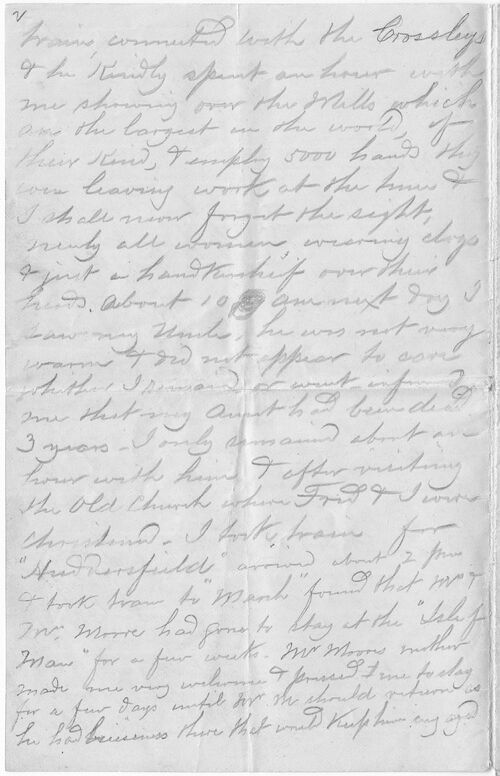 2
train, connected with the Crossleys
& he kindly spent an hour with
me showing over the Mills which
are the largest in the world, of
their kind, & employ 5000 hands they
were leaving work at the time &
I shall never forget the sight,
nearly all women wearing clogs
& just a handkerchief over their
heads. About 10 am next day I
saw my Uncle, he was not very
warm & did not appear to care
whether I remained or went informed
me that my Aunt had been dead
3 years - I only remained about an
hour with him & after visiting
the Old Church where Fred & I were
Christened - I took train for
"Huddersfield" arrived about 2 pm
& took tram to "Marsh" found that Mr &
Mrs. Moore had gone to stay at the "Isle of
Man" for a few weeks. Mr Moores mother
made me very welcome & pressed me to stay
for a few days until Mr M should return as
he had business there that would keep him